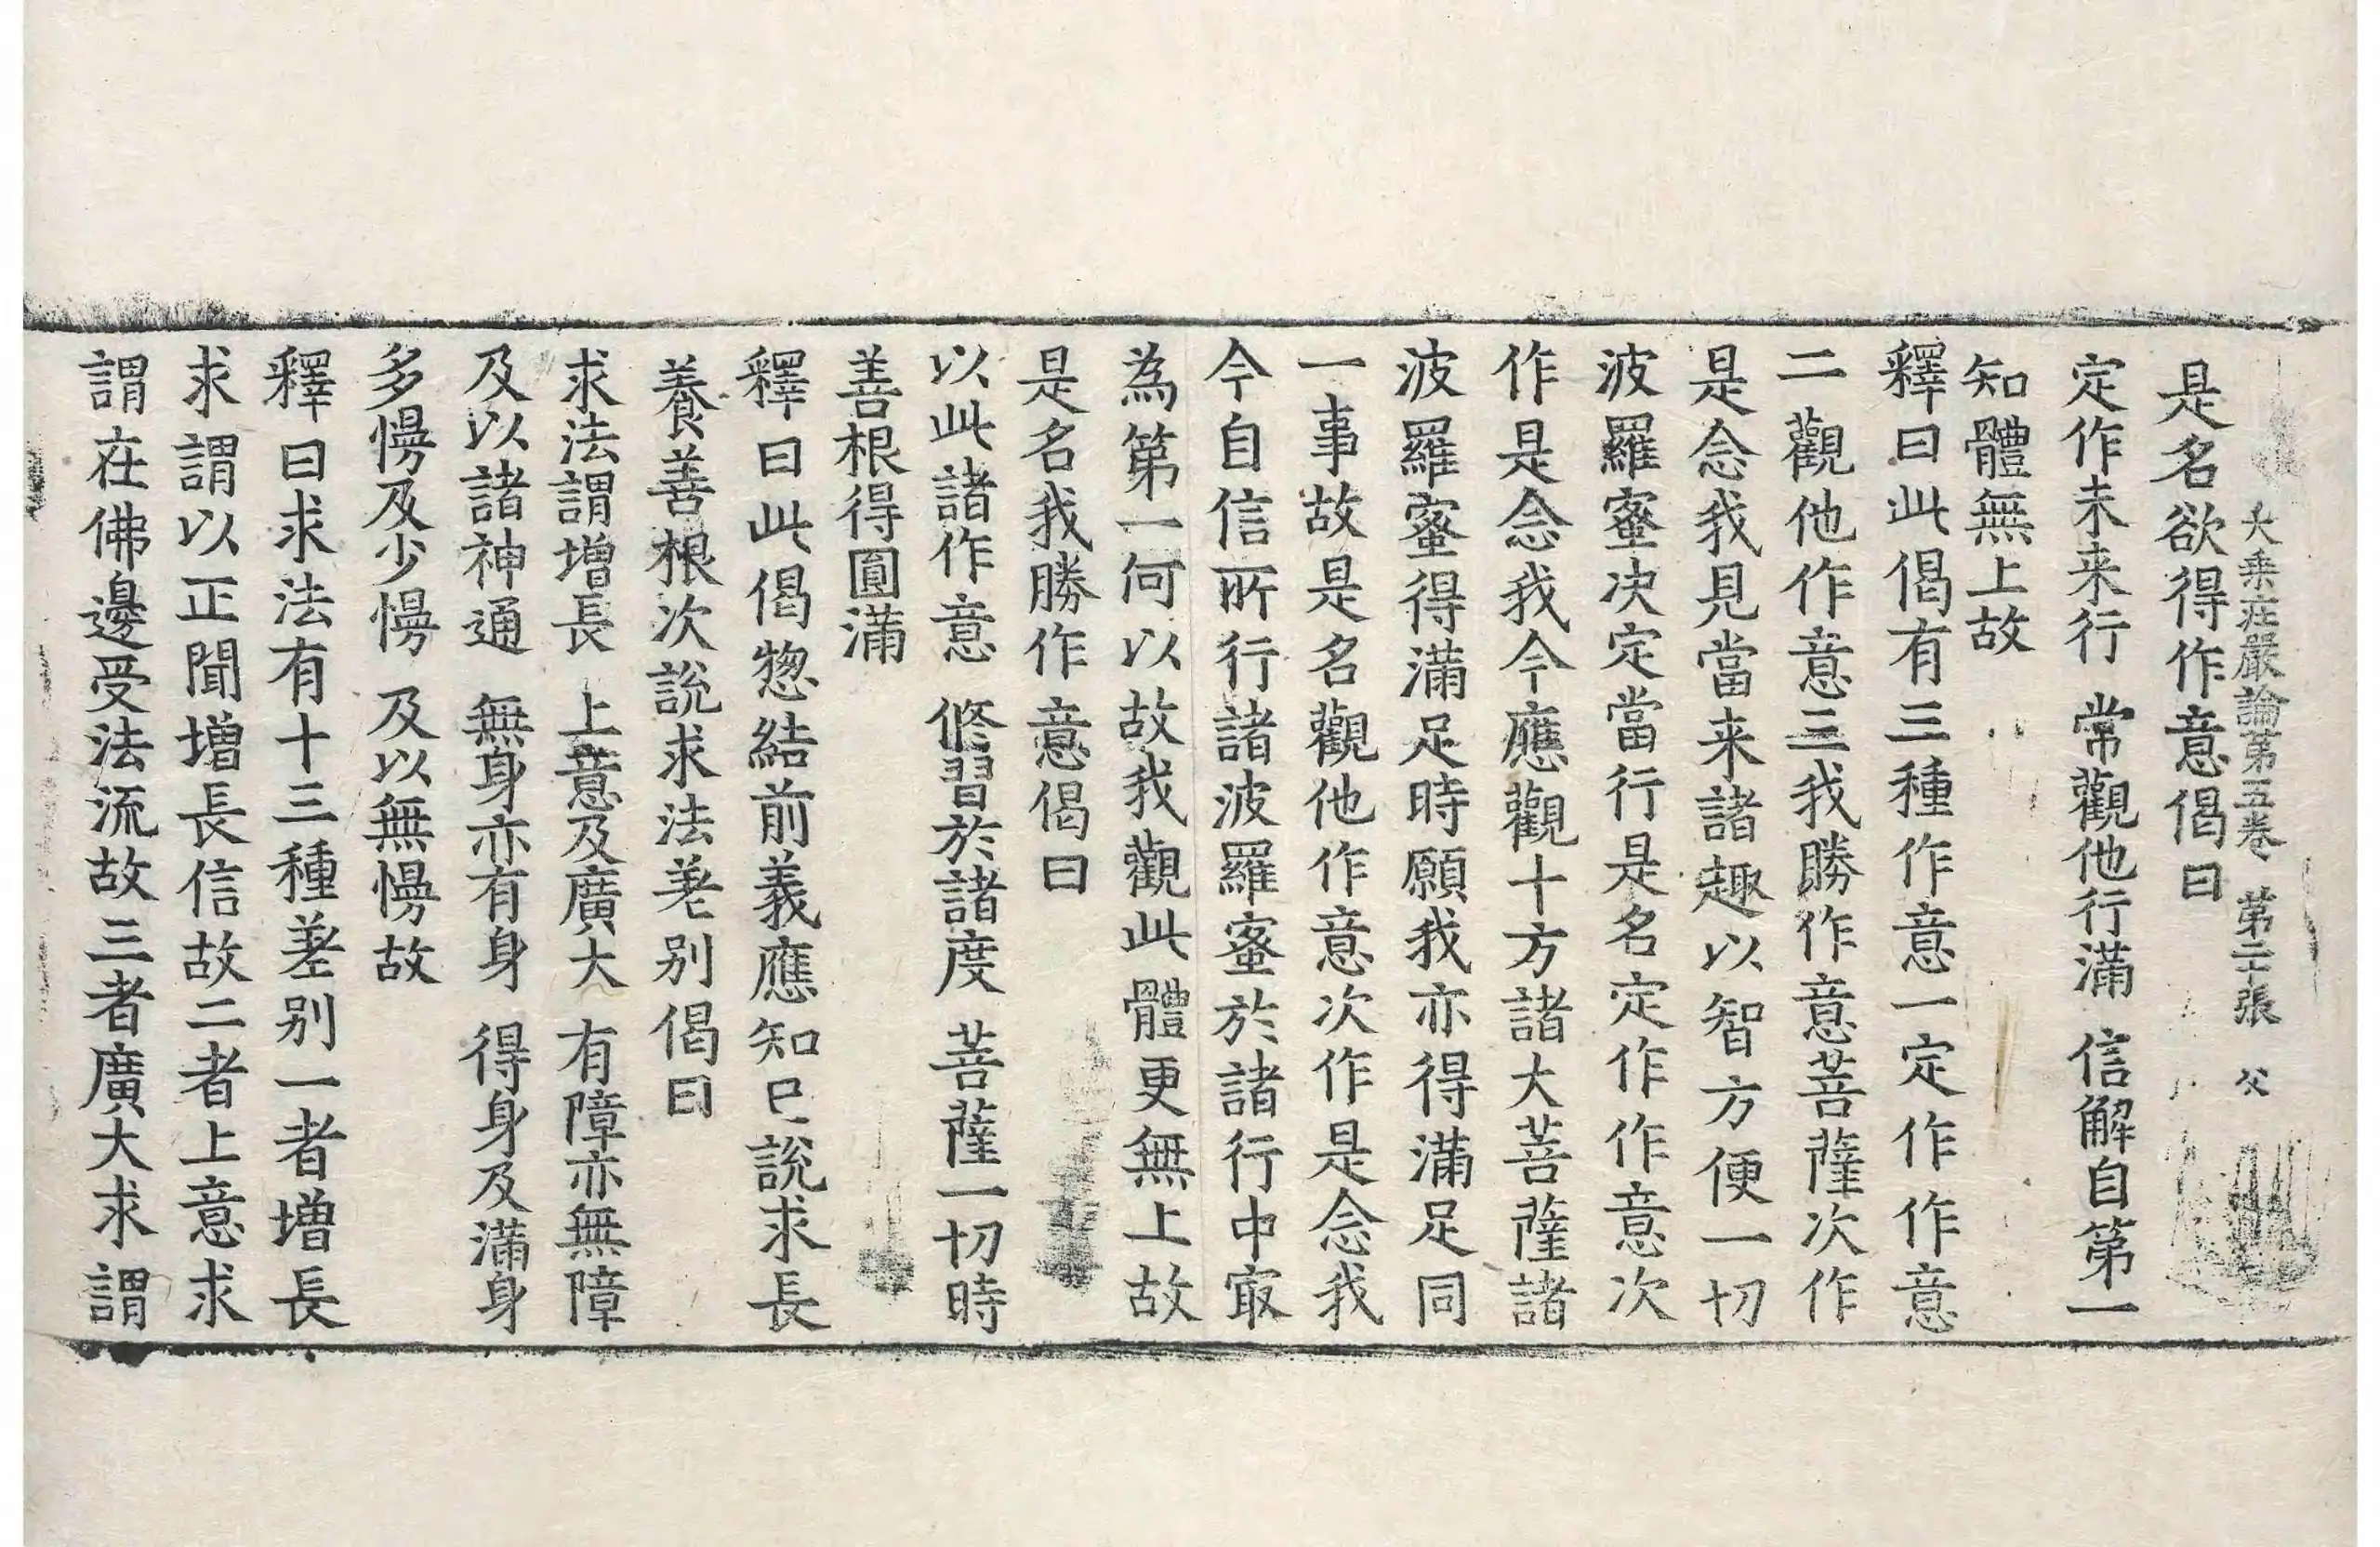 大乘莊嚴論第五卷 第二十張 父
是名欲得作意偈曰
定作未来行 常觀他行滿 信解自第一
知體無上故
釋曰此偈有三種作意一定作作意
二觀他作意三我勝作意菩薩次作
是念我見當来諸趣以智方便一切
波羅蜜决定當行是名定作作意次
作是念我今應觀十方諸大菩薩諸
波羅蜜得滿足時願我亦得滿足同
一事故是名觀他作意次作是念我
今自信所行諸波羅蜜於諸行中㝡
為第一何以故我觀此體更無上故
是名我勝作意偈曰
以此諸作意 修習於諸度 菩薩一切時
善根得圓滿
釋曰此偈惣結前義應知已說求長
養善根次說求法差别偈曰
求法謂增長 上意及廣大 有障亦無障
及以諸神通 無身亦有身 得身及滿身
多慢及少慢 及以無慢故
釋曰求法有十三種差别一者增長
求謂以正聞增長信故二者上意求
謂在佛邊受法流故三者廣大求謂